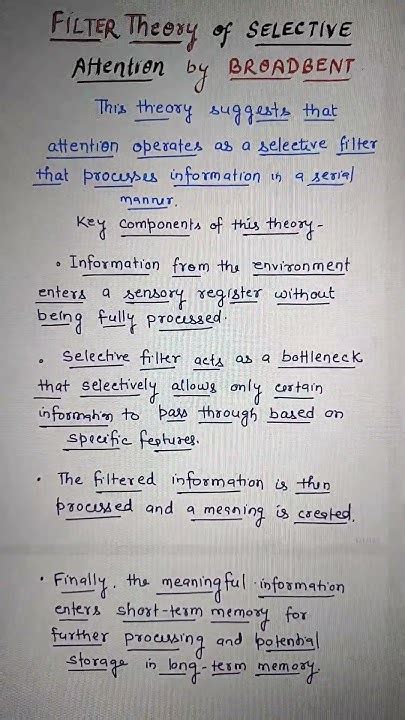 FILTER Theory of SELECTIVE
Attention by BROADBENT
This theory suggests that
attention operates as a selective filter
that processes information in a serial
manner.
Key components of this theory -
• Information from the environment
enters a sensory register without
being fully processed.
• Selective filter acts as a bottleneck
that selectively allows only certain
information to pass through based on
specific features.
• The filtered information is then
processed and a meaning is created.
• Finally, the meaningful information
enters short-term memory for
further processing and potential
storage in long-term memory.